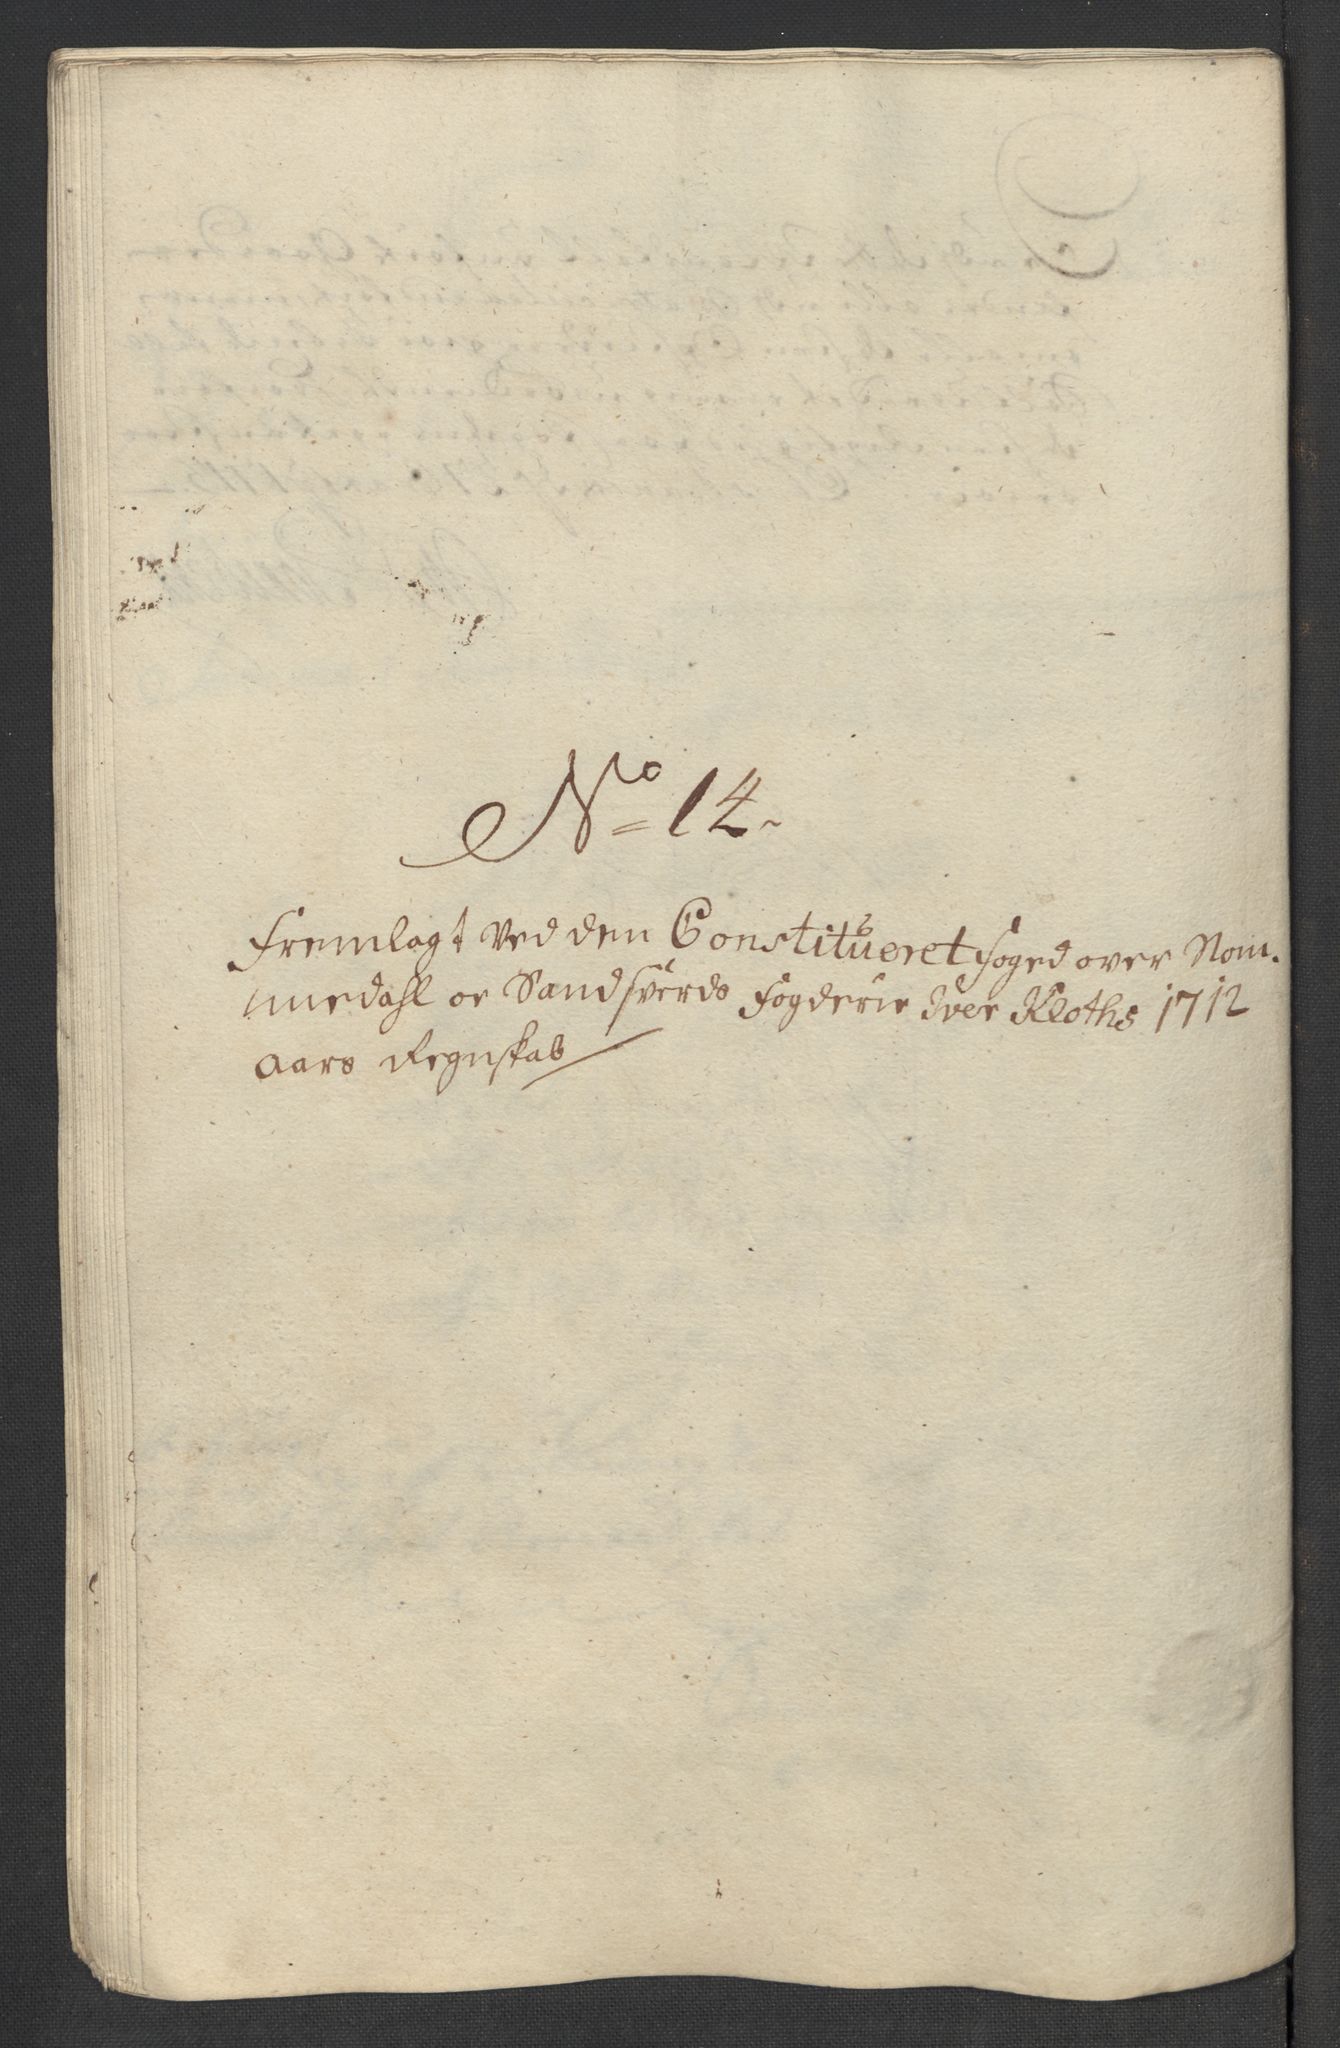 No 14.
Fremlagt ved dem Constitueret foged over Nom-
medahl oe Sandsverds fogderie Iver Kloths 1712
aars Regnskab